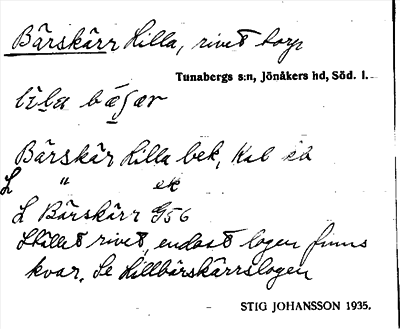 Bärskärr Lilla, rivet torp
Tunabergs s:n, Jönåkers hd, Söd. l.
lìla
Bärskär Lilla bek, Kab
L " ek
L Bärskärr G56
Stället rivet, endast logen finns
kvar. Se Lillbärskärrslogen
STIG JOHANSSON 1935.